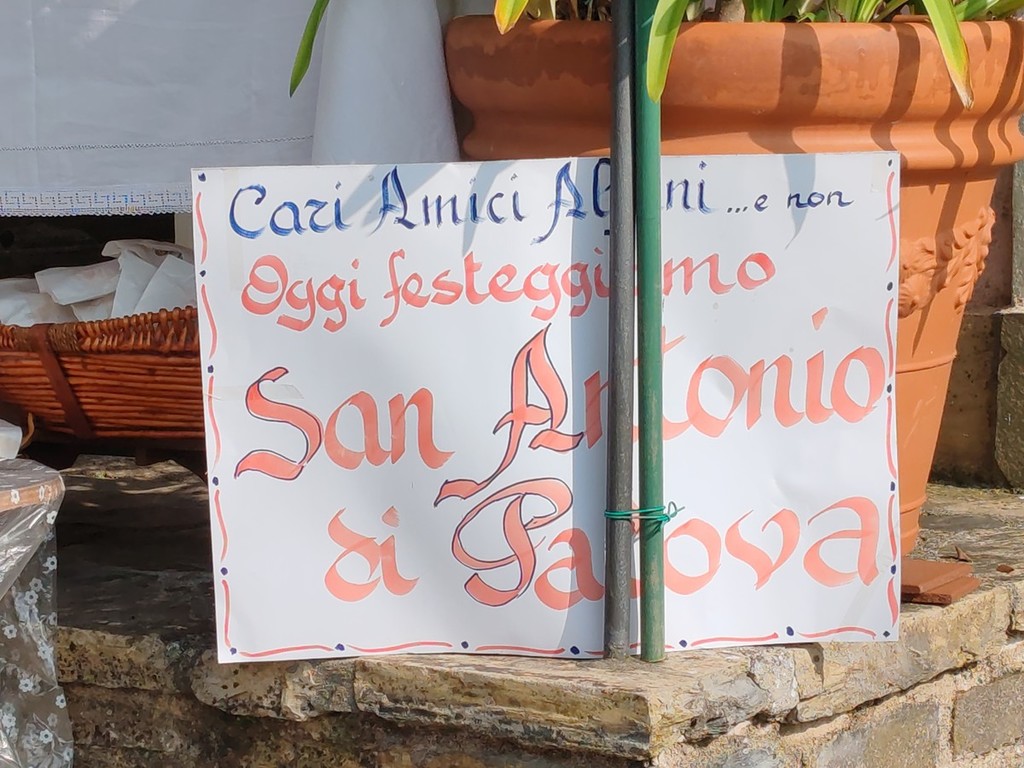 Cari Amici Alpini ...e non
Oggi festeggiamo
San Antonio
di Padova